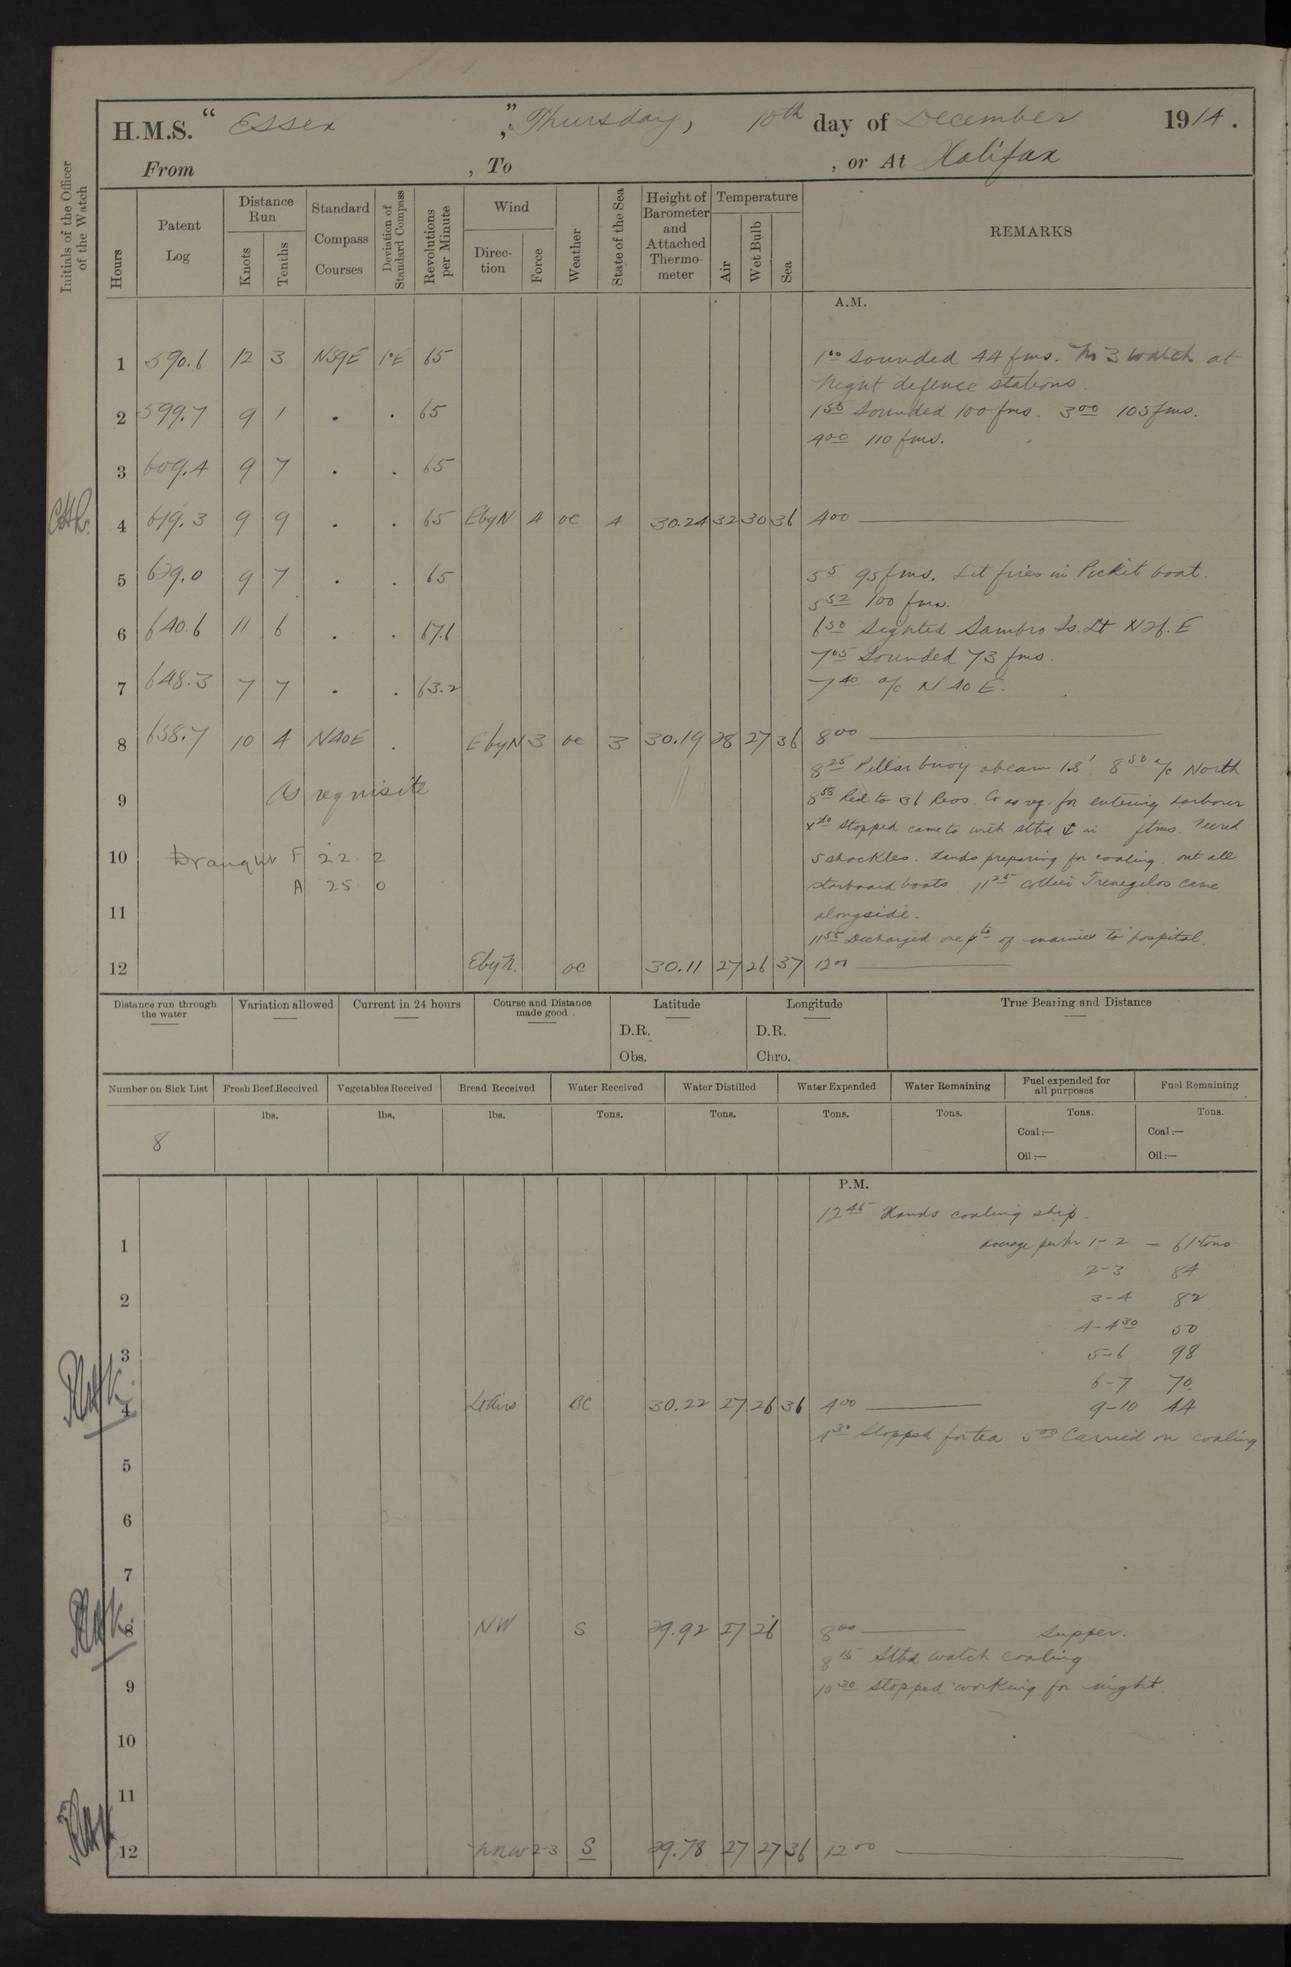 H.M.S. "Essex", Thursday, 10th day of December 1914.
From , To , or At Halifax
Initials of the Officer of the Watch
Hours
Patent Log
Distance Run
Knots
Tenths
Standard Compass Courses
Deviation of Standard Compass
Revolutions per Minute
Wind
Direction
Force
Weather
State of the Sea
Height of Barometer and Attached Thermometer
Temperature
Air
Wet Bulb
Sea
REMARKS
A.M.
1 590.6 12 3 N59E 1°E 65 1 00 Sounded 44 fms. No 3 Watch at
Night defence stations.
2 599.7 9 1 . . 65 1 55 Sounded 100 fms. 3 00 105 fms.
4 00 110 fms.
3 609.4 9 7 . . 65
4 619.3 9 9 . . 65 EbyN 4 oc 4 30.24 32 30 36 4 00
5 629.0 9 7 . . 65 5 5 95 fms. Lit fires in Picket boat.
5 52 100 fms.
6 640.6 11 6 . . 67.6 6 50 Sighted Sambro Is. Lt N26.E
7 05 Sounded 73 fms.
7 648.3 7 7 . . 63.2 7 40 a/c N 40 E.
8 658.7 10 4 N40E . EbyN 3 oc 3 30.19 28 27 36 8 00
8 25 Pillar buoy abeam 1.8' 8 50 a/c North
9 As requisite 8 58 Red to 36 Revs. Co as req. for entering harbour
Stopped came to with stbd ⚓ in fms. Veered
10 Draught F 22 . 2 5 shackles. Hands preparing for coaling. out all
A 25 . 0 starboard boats. 11 25 Collier Trenegelos came
11 alongside.
11 55 Discharged one pte of marines to hospital.
12 EbyN. oc 30.11 27 26 37 12 00
Distance run through the water
Variation allowed
Current in 24 hours
Course and Distance made good
Latitude
D.R.
Obs.
Longitude
D.R.
Chro.
True Bearing and Distance
Number on Sick List
Fresh Beef Received
Vegetables Received
Bread Received
Water Received
Water Distilled
Water Expended
Water Remaining
Fuel expended for all purposes
Fuel Remaining
lbs. lbs. lbs. Tons. Tons. Tons. Tons. Tons. Tons.
8 Coal:— Coal:—
Oil:— Oil:—
P.M.
12 45 Hands coaling ship.
1 average per hr 1-2 — 61 tons
2-3 84
2 3-4 82
4-4 30 50
3 5-6 98
6-7 70
4 Lt Airs BC 30.22 27 26 36 4 00 9-10 44
4 30 Stopped for tea 5 00 Carried on coaling
5
6
7
8 NW S 29.92 27 26 8 00 Supper.
8 15 Stbd watch coaling
9 10 30 stopped working for night.
10
11
12 NNW 2-3 S 29.78 27 27 36 12 00